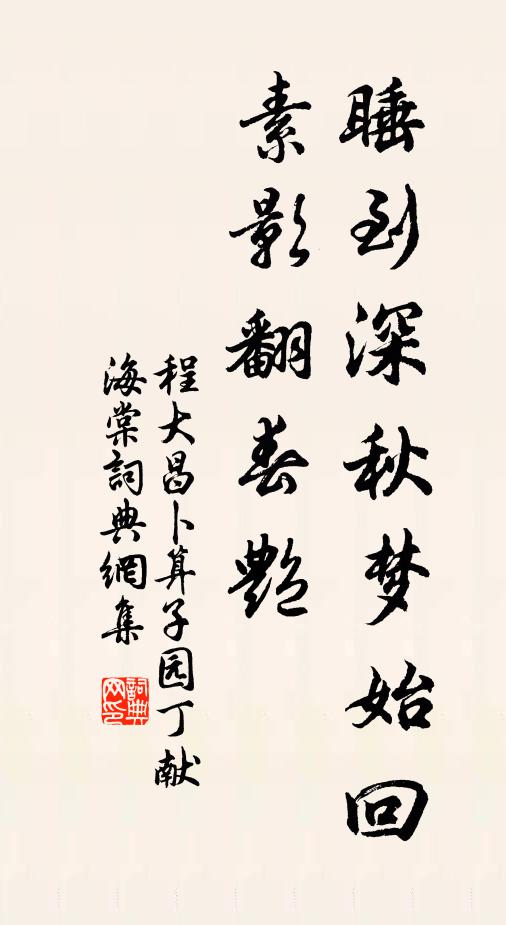 睡到深秋梦始回
素影翻春艷
程大昌卜算子园丁献
海棠詞典網集
詞典
网印